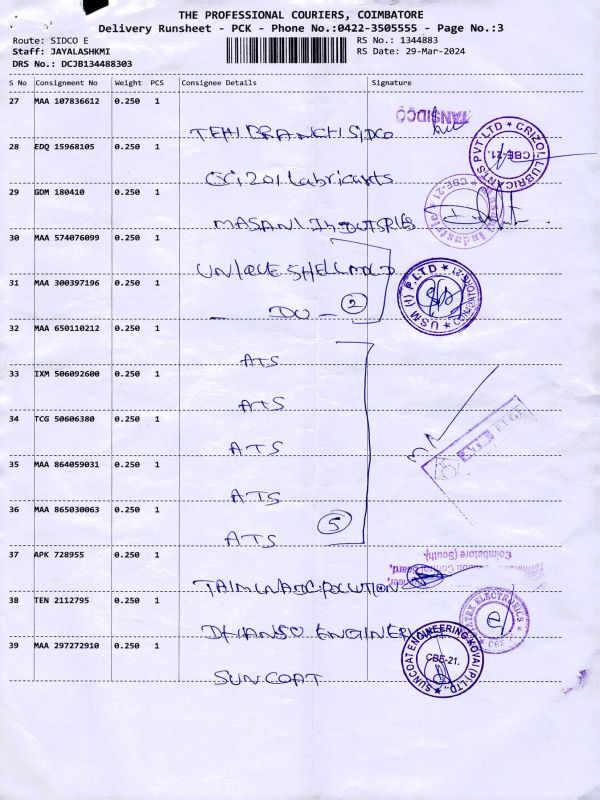 THE PROFESSIONAL COURIERS, COIMBATORE
Delivery Runsheet - PCK - Phone No.:0422-3505555 - Page No.:3
Route: SIDCO E
RS No.: 1344883
Staff: JAYALASHKMI
RS Date: 29-Mar-2024
DRS No.: DCJB134488303
S No Consignment No Weight PCS Consignee Details Signature
27 MAA 107836612 0.250 1
TANSIDCO
BRANCH SIDCO
28 EDQ 15968105 0.250 1
CRIZOL LUBRICANTS PVT LTD
CBE-21.
Lubricants
29 GDM 180410 0.250 1
CBE-21
Industries
MASANI
30 MAA 574076099 0.250 1
UNIQUE SHELLMOLD
31 MAA 300397196 0.250 1
USM (I) P.LTD
- DO - 2
32 MAA 650110212 0.250 1
ATS
33 IXM 506092600 0.250 1
ATS
34 TCG 50606380 0.250 1
ATS
35 MAA 864059031 0.250 1
ATS
36 MAA 865030063 0.250 1
ATS 5
37 APK 728955 0.250 1
Coimbatore (South)
POLLUTION
38 TEN 2112795 0.250 1
ELECTRONICS
39 MAA 297272910 0.250 1
SUNCOAT ENGINEERING KOVAI (P) LTD.
CBE-21.
SUNCOAT